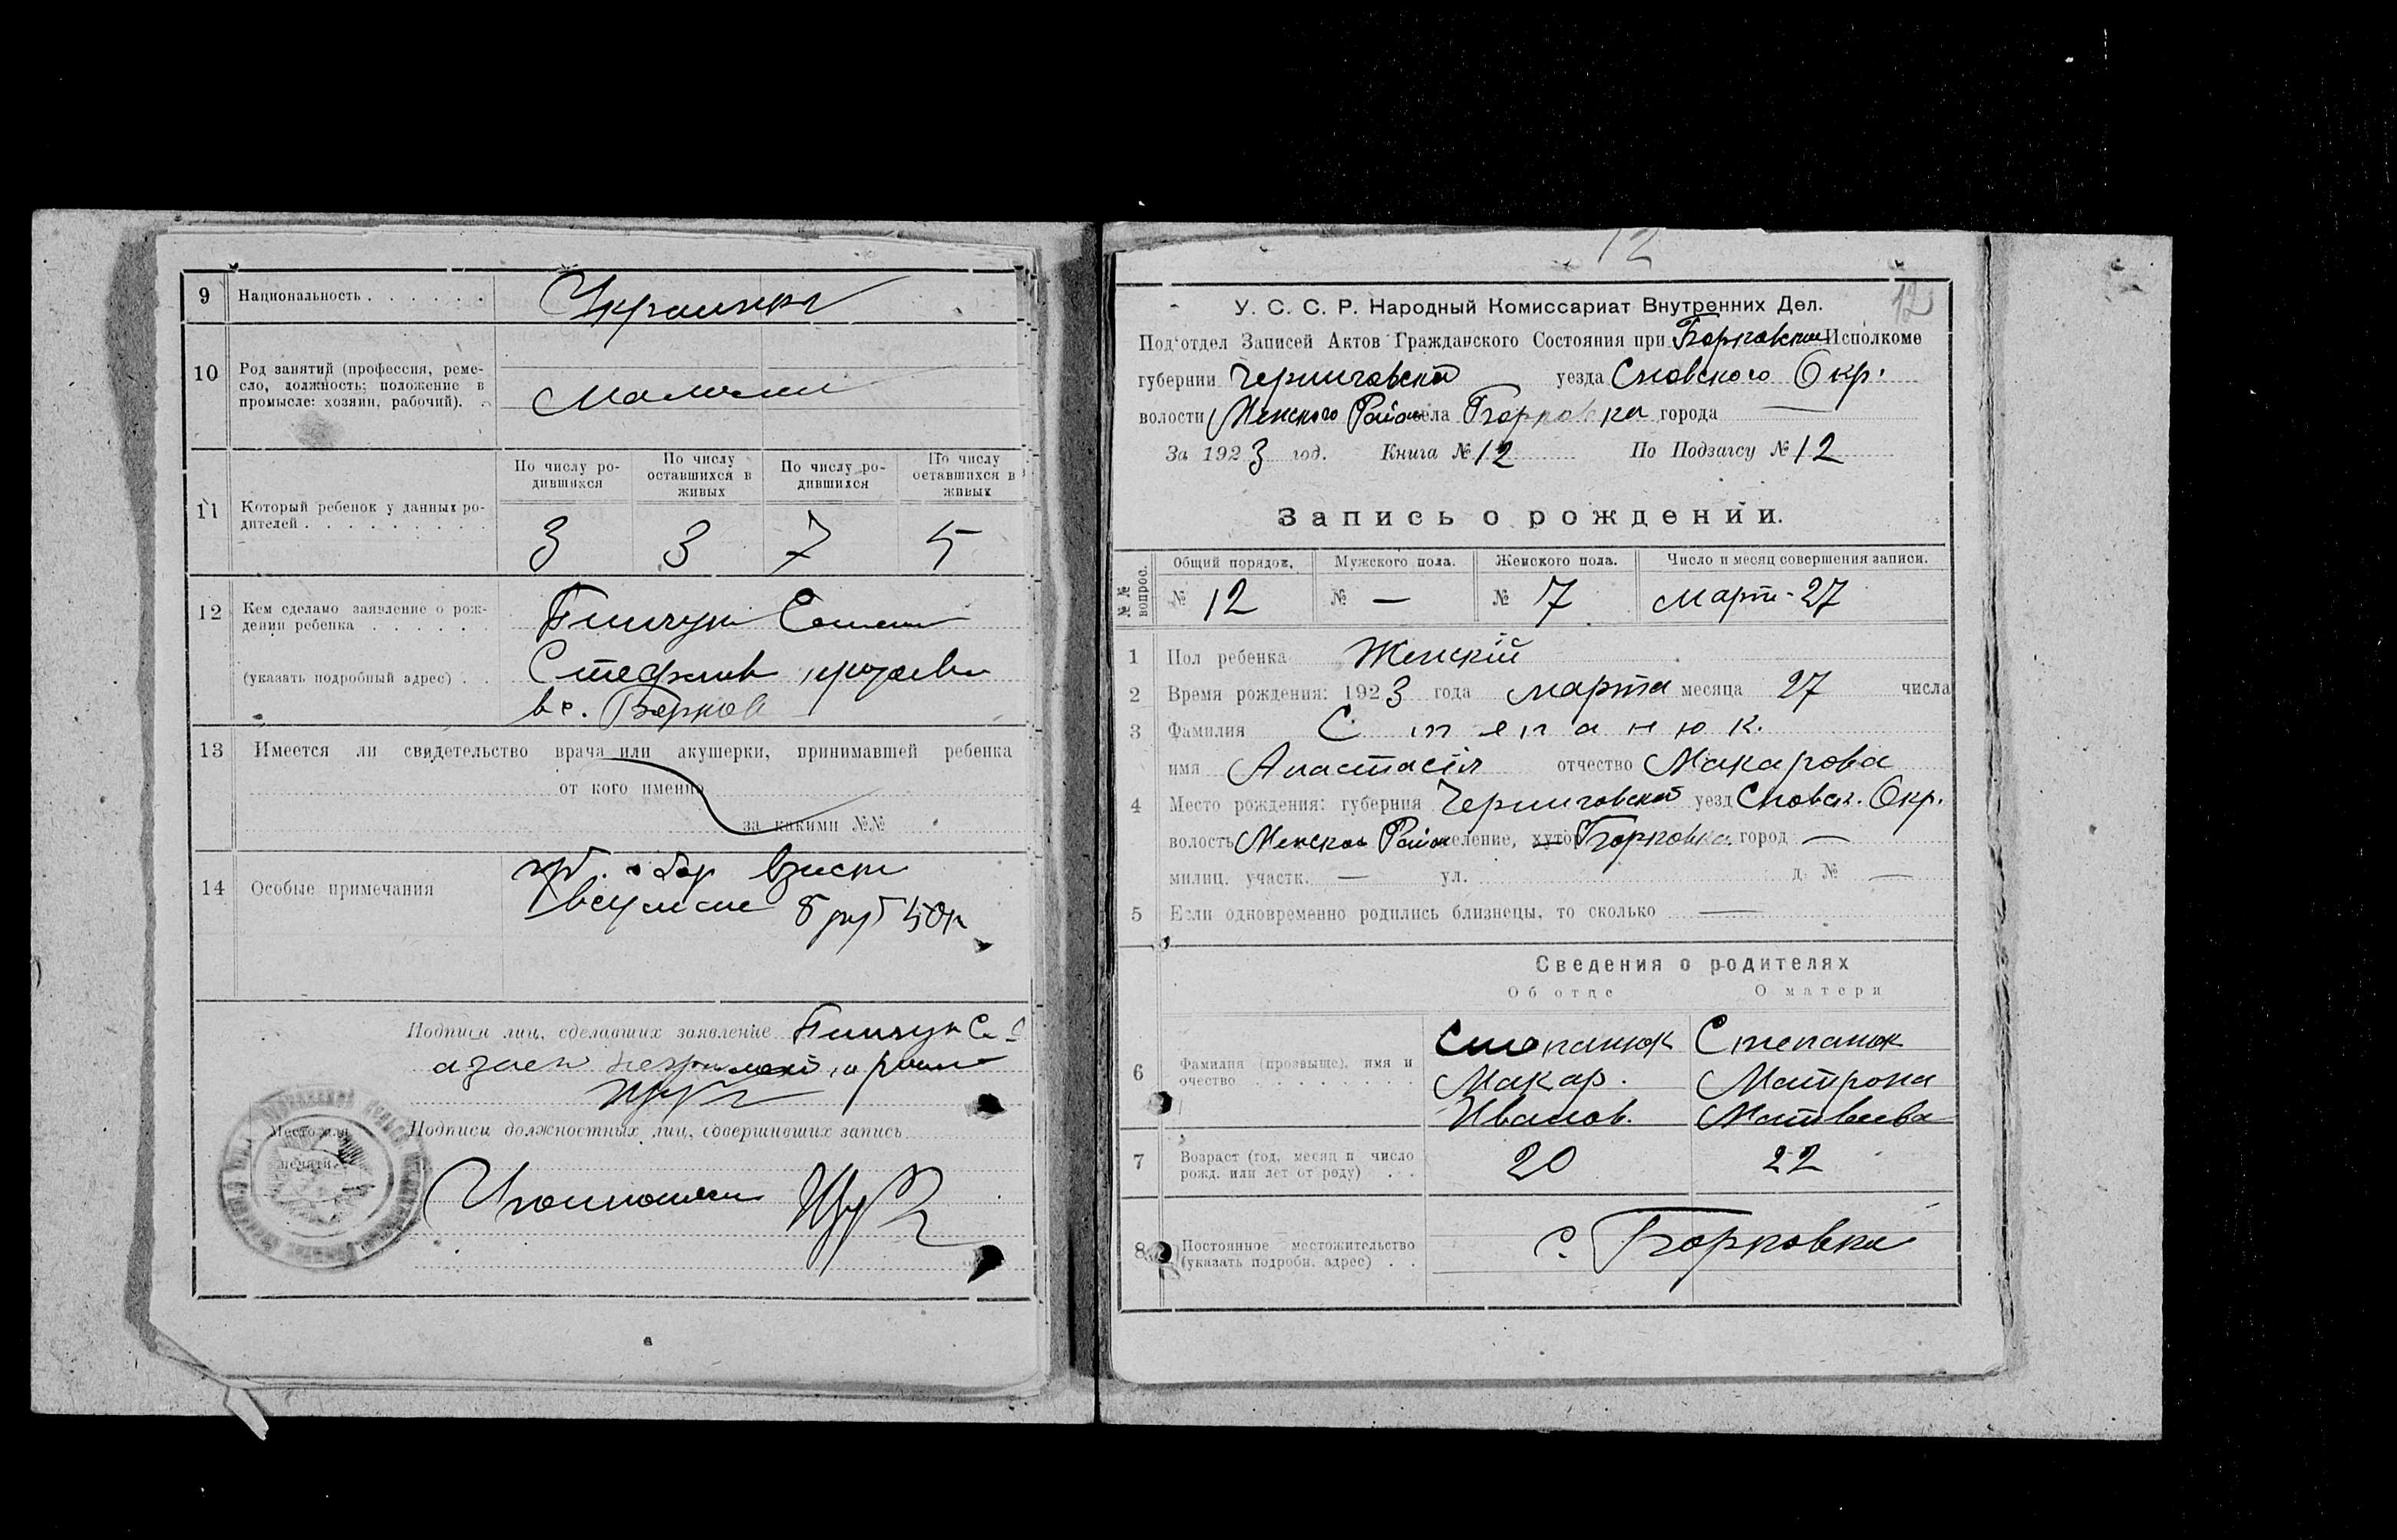 9 Национальность . . . . . . Украинцы
10 Род занятий (профессия, реме-
сло, должность; положение в
промысле: хозяин, рабочий).
11 Который ребенок у данных ро-
дителей . . . . . . . . .
По числу ро-
дившихся
По числу
оставшихся в
живых
По числу ро-
дившихся
По числу
оставшихся в
живых
3 3 7 5
12 Кем сделано заявление о рож-
дении ребенка . . . . .
(указать подробный адрес) . .
13 Имеется ли свидетельство врача или акушерки, принимавшей ребенка
от кого именно
за какими №№
14 Особые примечания
5 руб 50к
Подписи лиц, сделавших заявление
Место для
печати.
Подписи должностных лиц, совершивших запись
12
12
У. С. С. Р. Народный Комиссариат Внутренних Дел.
Под'отдел Записей Актов Гражданского Состояния при Борковском Исполкоме
губернии Черниговской уезда Сновского Окр.
волости Менского Район села Борковка города —
За 1923 год. Книга № 12 По Подзагсу № 12
Запись о рождении.
№№ вопрос.
Общий порядок. Мужского пола. Женского пола. Число и месяц совершения записи.
№ 12 № — № 7 март - 27
1 Пол ребенка Женскій
2 Время рождения: 1923 года марта месяца 27 числа
3 Фамилия Степанюк.
имя Анастасія отчество Макарова
4 Место рождения: губерния Черниговской уезд Сновск. Окр.
волость Менском Район селение, хутор Борковка город —
милиц. участк. — ул. д. № —
5 Если одновременно родились близнецы, то сколько —
Сведения о родителях
Об отце О матери
6 Фамилия (прозвыше), имя и
очество . . . . . . . . .
Степанюк
Макар.
Иванов.
Степанюк
Матрона
Матвеева
7 Возраст (год, месяц и число
рожд. или лет от роду) . .
20 22
8 Постоянное местожительство
(указать подробн. адрес) . .
с. Борковка